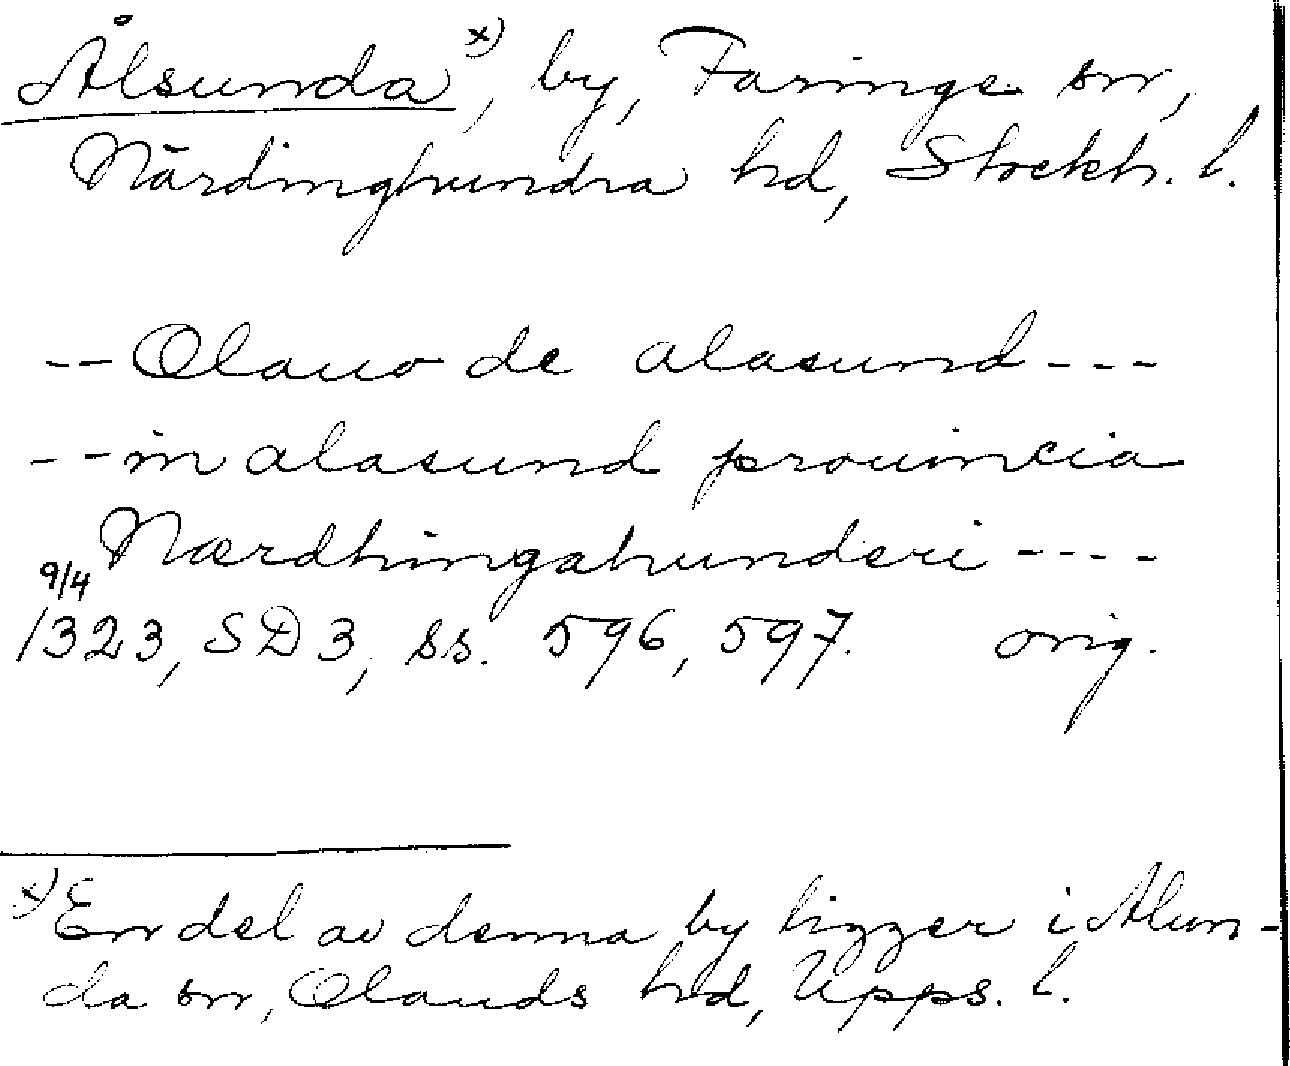 Ålsunda x), by, Faringe sn,
Närdinghundra hd, Stockh. l.
-- Olauo de alasund ---
-- in alasund prouincia
Nærdhingahunderi ----
9/4
1323, SD 3, ss. 596, 597. orig.
x) En del av denna by ligger i Alun-
da sn, Olands hd, Upps. l.